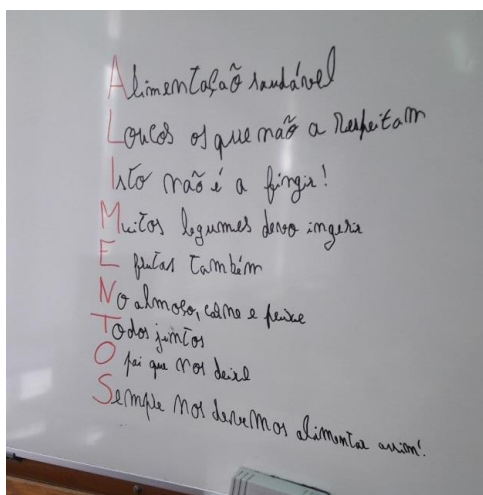 Alimentação saudável
Loucos os que não a Respeitam
Isto não é a fingir!
Muitos legumes devo ingerir
E frutas também
No almoso, carne e peixe
Todos juntos
O pai que nos deixe
Sempre nos devemos alimentar assim!